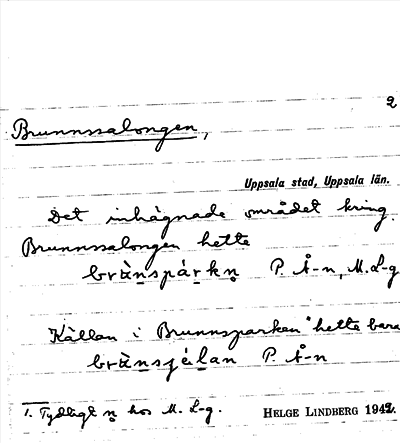 2
Brunnssalongen,
Uppsala stad, Uppsala län.
Det inhägnade området kring
Brunnssalongen hette
P. Å-n, M. L-g
Källan i Brunnsparken hette bara
P. Å-n
1. Tydligt ṇ hos M. L-g.
HELGE LINDBERG 1942.